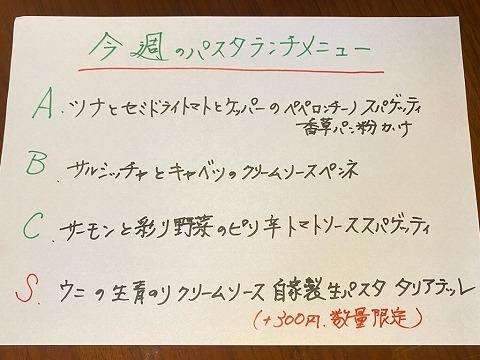 今週のパスタランチメニュー
A. ツナとセミドライトマトとケッパーのペペロンチーノ スパゲッティ
香草パン粉かけ
B. サルシッチャとキャベツのクリームソースペンネ
C. サーモンと彩り野菜のピリ辛トマトソーススパゲッティ
S. ウニの生青のりクリームソース 自家製生パスタ タリアテッレ
(+300円.数量限定)